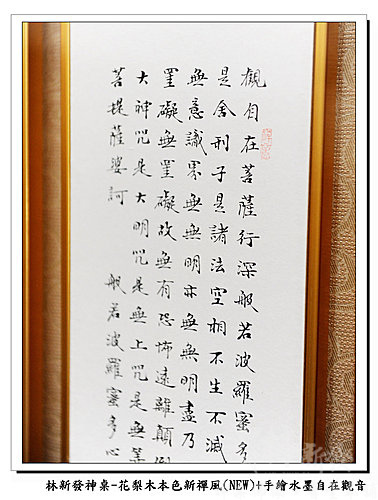 觀自在菩薩行深般若波羅蜜多
是舍利子是諸法空相不生不滅
無意識界無無明亦無無明盡乃
罣礙無罣礙故無有恐怖遠離顛倒
大神咒是大明咒是無上咒是無等
菩提薩婆訶 般若波羅蜜多心
林新發神桌-花梨木本色新禪風(NEW)+手繪水墨自在觀音